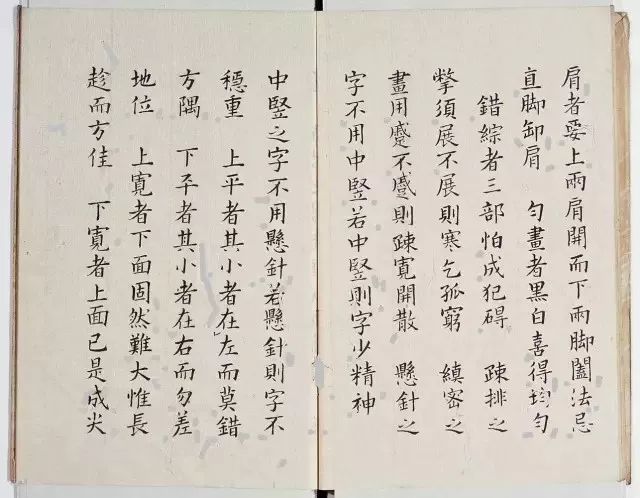 肩者要上兩肩開而下兩脚闔法忌
直脚卸肩　勻畫者黑白喜得均勻
錯綜者三部怕成犯碍　踈排之
撆須展不展則寒乞孤窮　縝密之
畫用蹙不蹙則踈寛開散　懸針之
字不用中竪若中竪則字少精神
中竪之字不用懸針若懸針則字不
穩重　上平者其小者在左而莫錯
方隅　下平者其小者在右而勿差
地位　上寛者下面固然難大惟長
趁而方佳　下寛者上面已是成尖